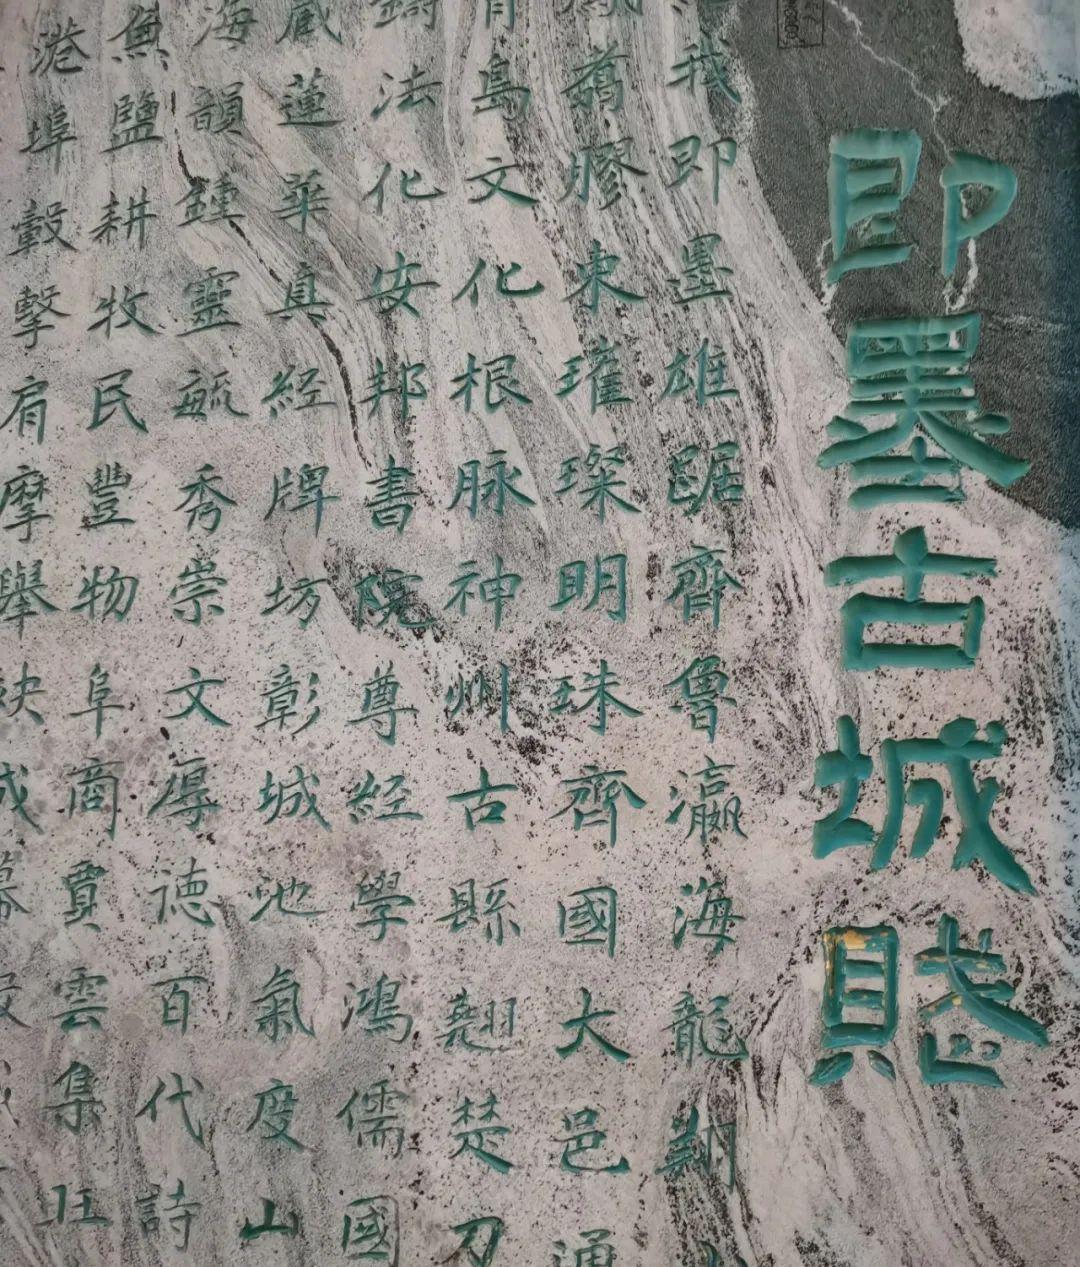 即墨古城賦
我即墨雄踞齊魯瀛海龍翔
鳳翥膠東璀璨明珠齊國大邑通
青島文化根脉神州古縣翹楚刀
鑄法化安邦書院尊經學鴻儒國
藏蓮華真經牌坊彰城池氣度山
海韻鍾靈毓秀崇文厚德百代詩
魚鹽耕牧民豐物阜商賈雲集旺
港埠轂擊肩摩舉袂成幕